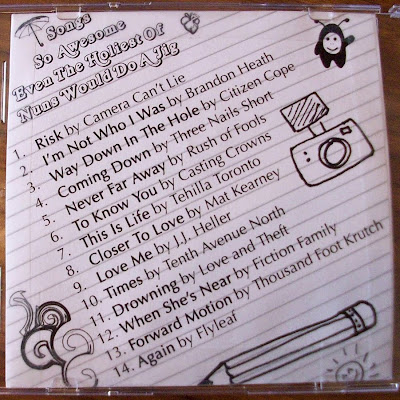 Songs
So Awesome
Even The Holiest Of
Nuns Would Do A Jig
1. Risk by Camera Can't Lie
2. I'm Not Who I Was by Brandon Heath
3. Way Down In The Hole by Citizen Cope
4. Coming Down by Three Nails Short
5. Never Far Away by Rush of Fools
6. To Know You by Casting Crowns
7. This Is Life by Tehilla Toronto
8. Closer To Love by Mat Kearney
9. Love Me by J.J. Heller
10. Times by Tenth Avenue North
11. Drowning by Love and Theft
12. When She's Near by Fiction Family
13. Forward Motion by Thousand Foot Krutch
14. Again by Flyleaf